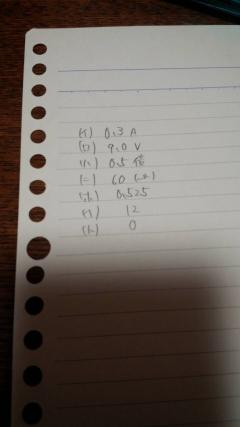 (イ) 0.3 A
(ロ) 9.0 V
(ハ) 0.5 倍
(ニ) 60
(ホ) 0.525
(ヘ) 12
(ト) 0